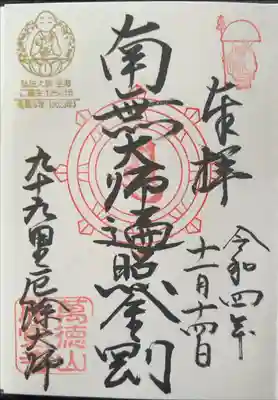 奉拝
令和四年
十一月十四日
南無大師遍照金剛
九十九里厄除大師
萬徳山
弘法大師